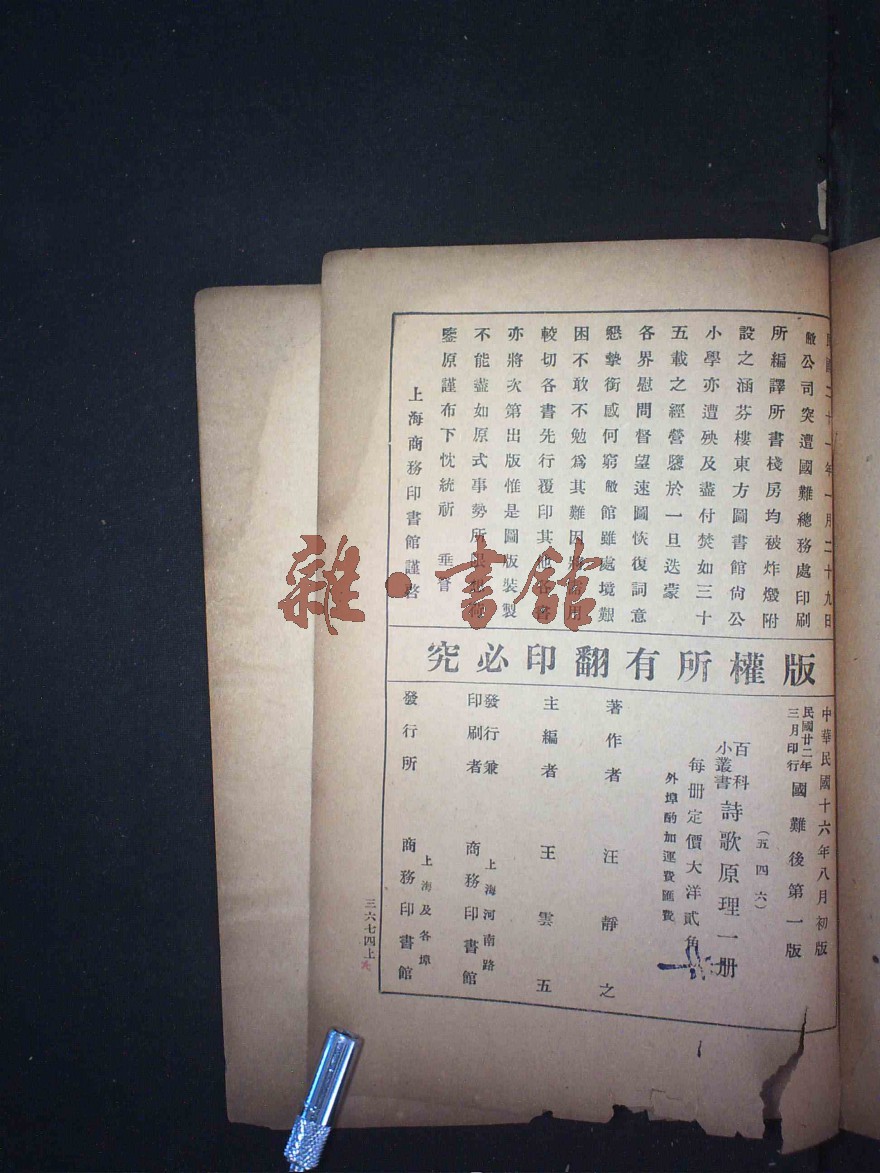 民國二十一年一月二十九日
敝公司突遭國難總務處印刷
所編譯所書棧房均被炸燬附
設之涵芬樓東方圖書館尙公
小學亦遭殃及盡付焚如三十
五載之經營隳於一旦迭蒙
各界慰問督望速圖恢復詞意
懇摯銜感何窮敝館雖處境艱
困不敢不勉爲其難因將需用
較切各書先行覆印其他各書
亦將次第出版惟是圖版裝製
不能盡如原式事勢所限想荷
鑒原謹布下忱統祈 垂詧
上海商務印書館謹啓
版權所有翻印必究
中華民國十六年八月初版
民國廿二年三月印行 國難後第一版
(五四六)
百科小叢書 詩歌原理一册
每册定價大洋貳角
外埠酌加運費匯費
著作者 汪靜之
主編者 王雲五
發行兼印刷者 上海河南路 商務印書館
發行所 上海及各埠 商務印書館
三六七四上
雜·書館